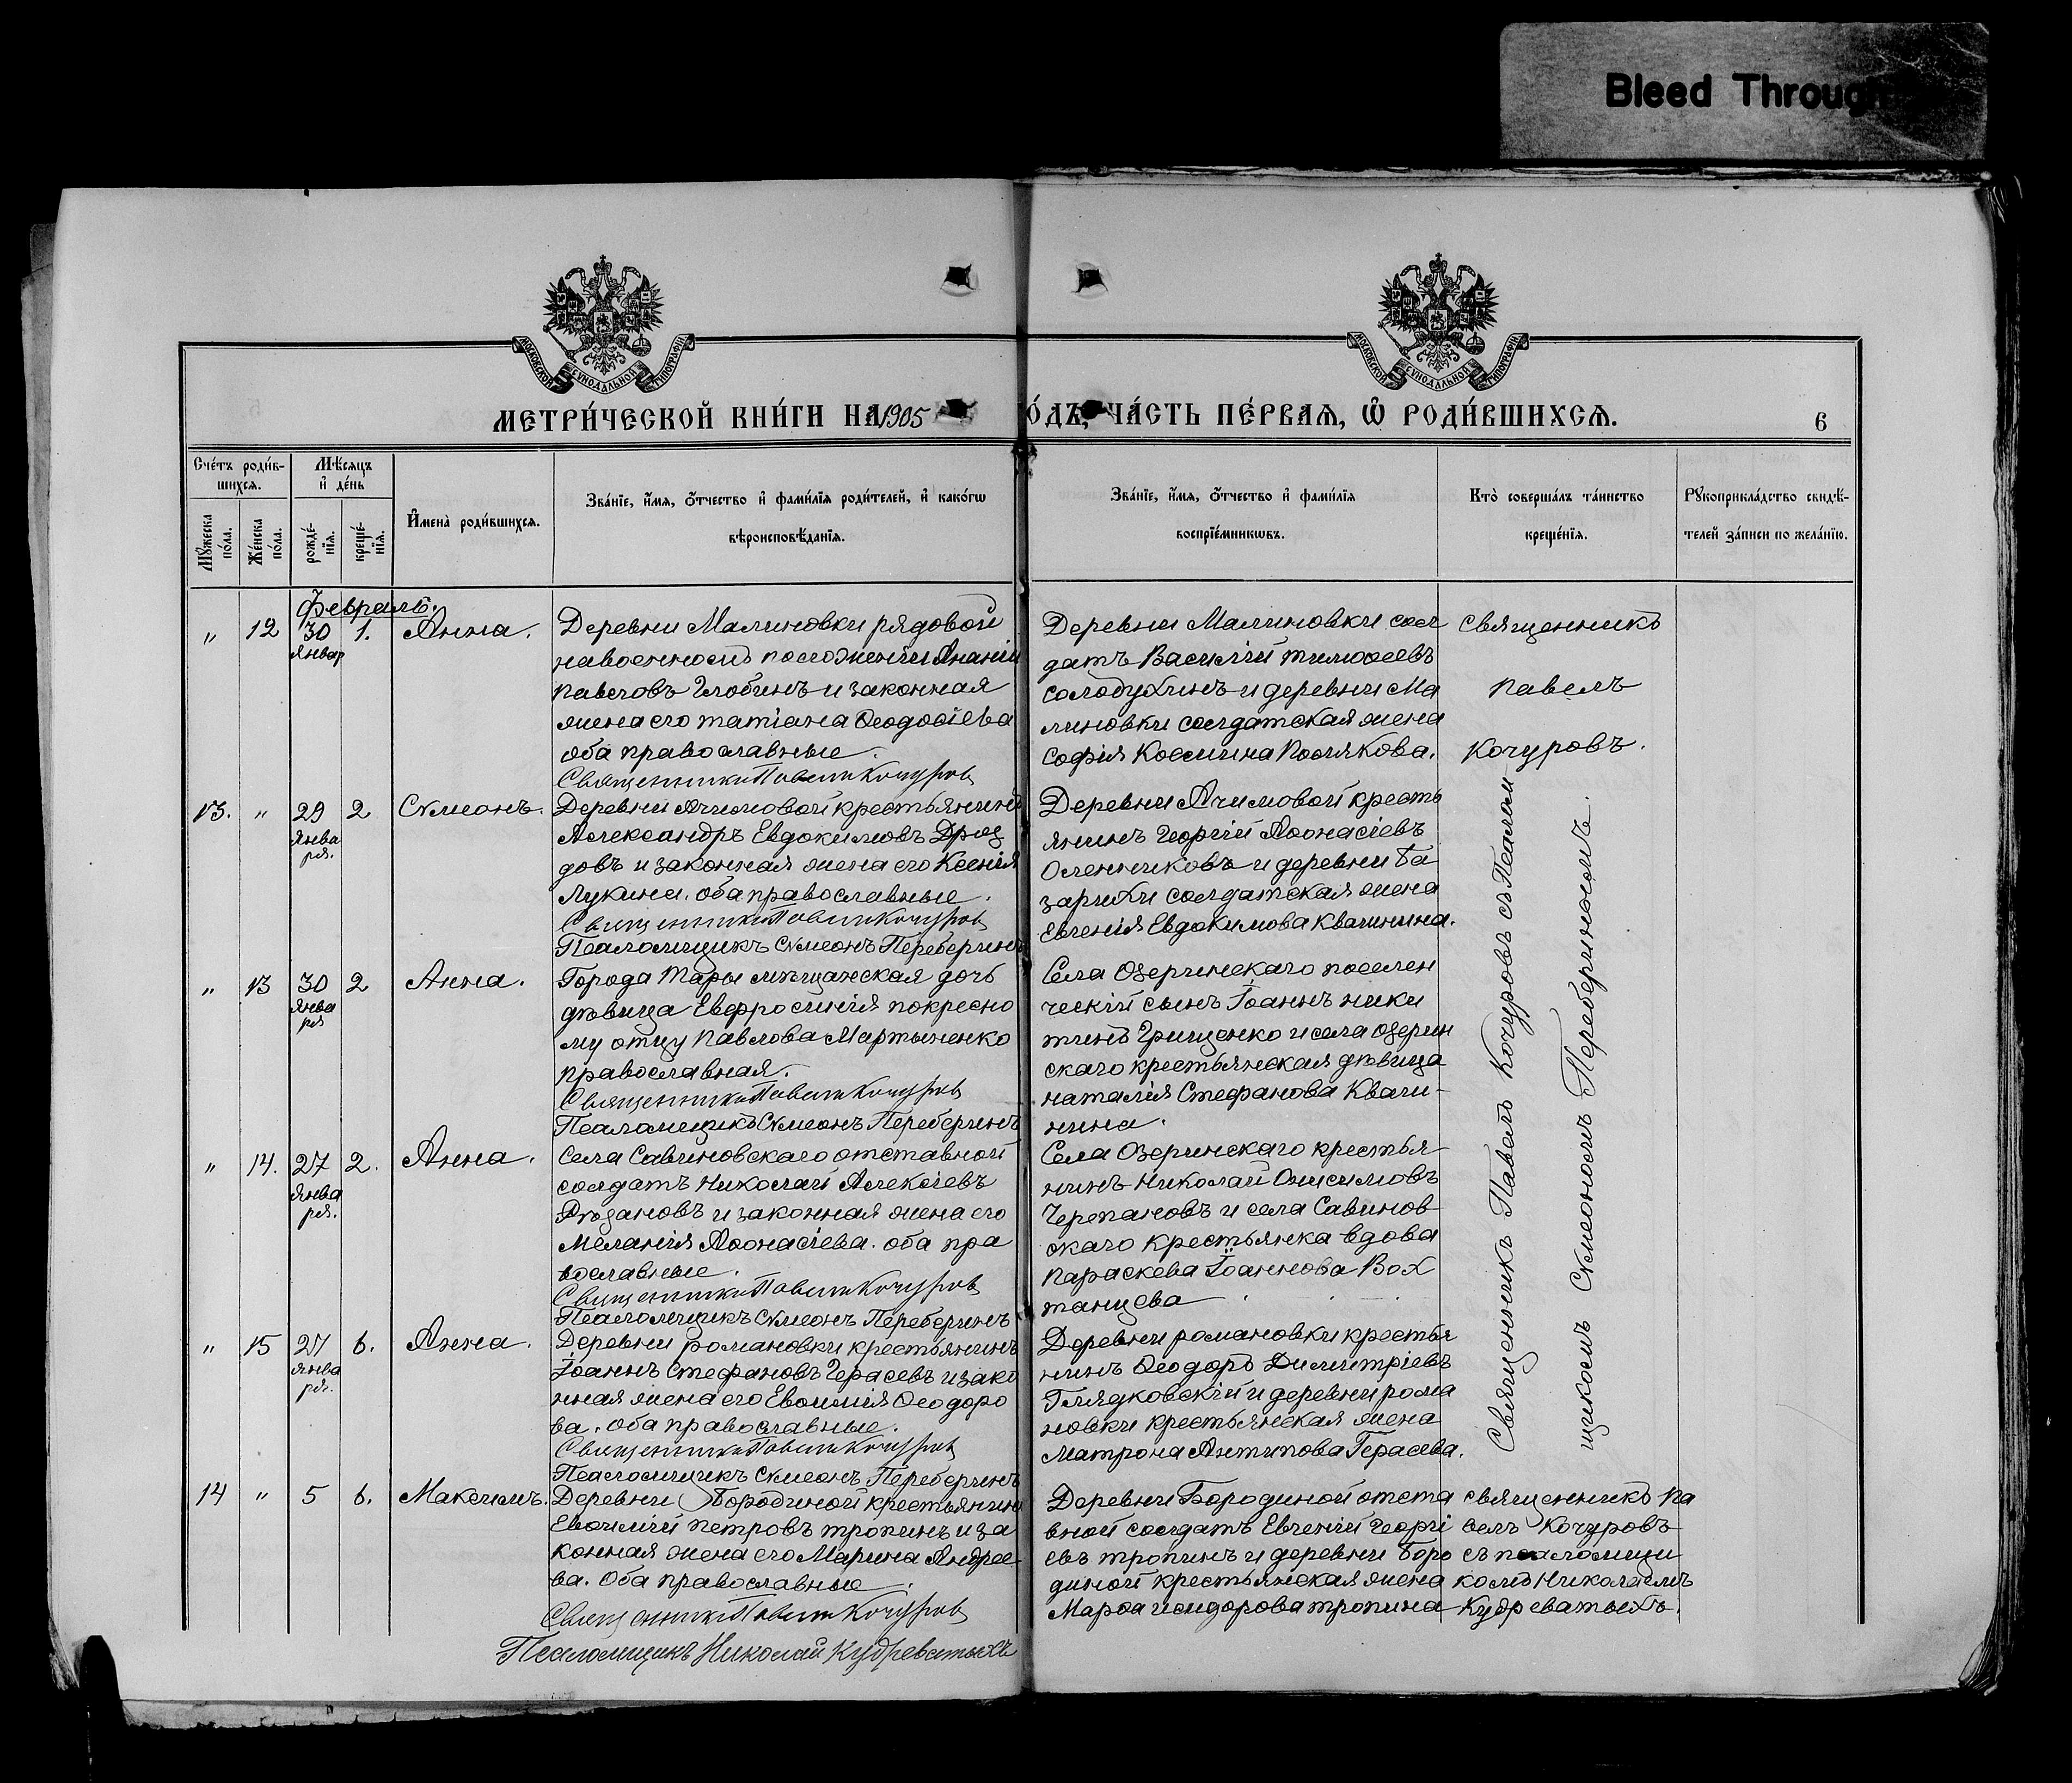 Bleed Through
МОСКОВСКОЙ СѴНОДАЛЬНОЙ ТИПОГРАФІИ
МОСКОВСКОЙ СѴНОДАЛЬНОЙ ТИПОГРАФІИ
МЕТРИ́ЧЕСКОЙ КНИ́ГИ НА 1905
О́ДЪ, ЧА́СТЬ ПЕ́РВАѦ, Ѡ҆ РОДИ́ВШИХСѦ.
6
Сче́тъ роди́в-
шихсѧ.
Мꙋ́жеска
по́ла.
Же́нска
по́ла.
Мѣ́сѧцъ
и҆ де́нь
рожде́-
нїѧ.
креще́-
нїѧ.
И҆мена̀ роди́вшихсѧ.
Зва́нїе, и҆́мѧ, ѻ҆́тчество и҆ фами́лїѧ роди́телей, и҆ како́гѡ
вѣроисповѣ́данїѧ.
Зва́нїе, и҆́мѧ, ѻ҆́тчество и҆ фами́лїѧ
воспрїе́мникѡвъ.
Кто̀ соверша́лъ та́инство
креще́нїѧ.
Рꙋкоприкла́дство свидѣ́-
телей за́писи по жела́нїю.
Февраль.
" 12 30 1. Анна.
Январ
Деревни Малиновки рядовой
на военномъ положеніи Ананій
Павловъ Глобинъ и законная
жена его Татіана Ѳеодосіева
оба православные.
Священникъ Павелъ Кочуровъ
Деревни Малиновки сол
датъ Василій Тимоѳеевъ
Солодухинъ и деревни Ма
линовки солдатская жена
Софія Космина Полякова.
Священникъ
Павелъ
Кочуровъ.
13. " 29 2 Сѵмеонъ.
Янва
ря.
Деревни Ачимовой крестьянинъ
Александръ Евдокимовъ Дроз
довъ и законная жена его Ксенія
Лукина. оба православные.
Священникъ Павелъ Кочуровъ
Псаломщикъ Сѵмеонъ Переберинъ
Деревни Ачимовой кресть
янинъ Георгій Аѳонасіевъ
Оленниковъ и деревни Ба
зарихи солдатская жена
Евгенія Евдокимова Квашнина.
" 13 30 2 Анна.
Янва
ря
Города Тары мѣщанская дочь
дѣвица Евфросинія по кресно
му отцу Павлова Мартыненко
православная.
Священникъ Павелъ Кочуровъ
Псаломщикъ Сѵмеонъ Переберинъ
Села Озеринскаго поселен
ческій сынъ Іоаннъ Ники
тинъ Грищенко и села Озерин
скаго крестьянская дѣвица
Наталія Стефанова Кваш-
нина.
" 14. 27 2. Анна.
Янва
ря.
Села Савиновскаго отставной
солдатъ Николай Алексіевъ
Рѣзановъ и законная жена его
Меланія Аѳонасіева. оба пра
вославные.
Священникъ Павелъ Кочуровъ
Псаломщикъ Сѵмеонъ Переберинъ
Села Озеринскаго крестья
нинъ Николай Онисимовъ
Черепановъ и села Савинов
скаго крестьянка вдова
Параскева Іоаннова Вох
танцева
" 15 27 6. Анна.
Янва
ря.
Деревни Романовки крестьянинъ
Іоаннъ Стефановъ Герасевъ и зако
нная жена его Евѳимія Ѳеодоро
ва. Оба православные.
Священникъ Павелъ Кочуровъ
Псаломщикъ Сѵмеонъ Переберинъ
Деревни Романовки крестья
нинъ Ѳеодоръ Димитріевъ
Глядковскій и деревни Рома
новки крестьянская жена
Матрона Антипова Герасева.
Священникъ Павелъ Кочуровъ съ Псалом
щикомъ Сѵмеономъ Переберинымъ.
14 " 5 6. Максимъ.
Деревни Бородиной крестьянинъ
Евѳимій Петровъ Тропинъ и за
конная жена его Марина Андрее
ва. Оба православные.
Священникъ Павелъ Кочуровъ
Псаломщикъ Николай Кудреватыхъ
Деревни Бородиной отста
вной солдатъ Евгеній Георгі
евъ Тропинъ и деревни Боро
диной крестьянская жена
Марѳа Исидорова Тропина
священникъ Па
велъ Кочуровъ
съ псаломщи
комъ Николаемъ
Кудреватыхъ.